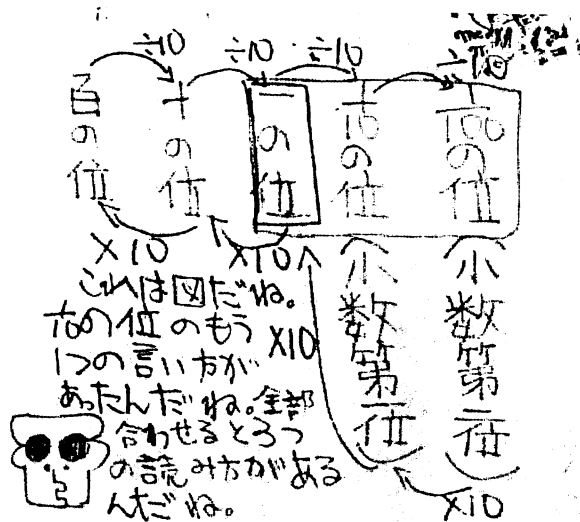 ÷10 ÷10 ÷10 ÷10
百の位
十の位
一の位
1/10の位
(小数第一位)
1/100の位
(小数第二位)
×10 ×10 ×10 ×10
これは図だね。
1/10の位のもう
1つの言い方が
あったんだね。全部
合わせると3つ
の読み方がある
んだね。